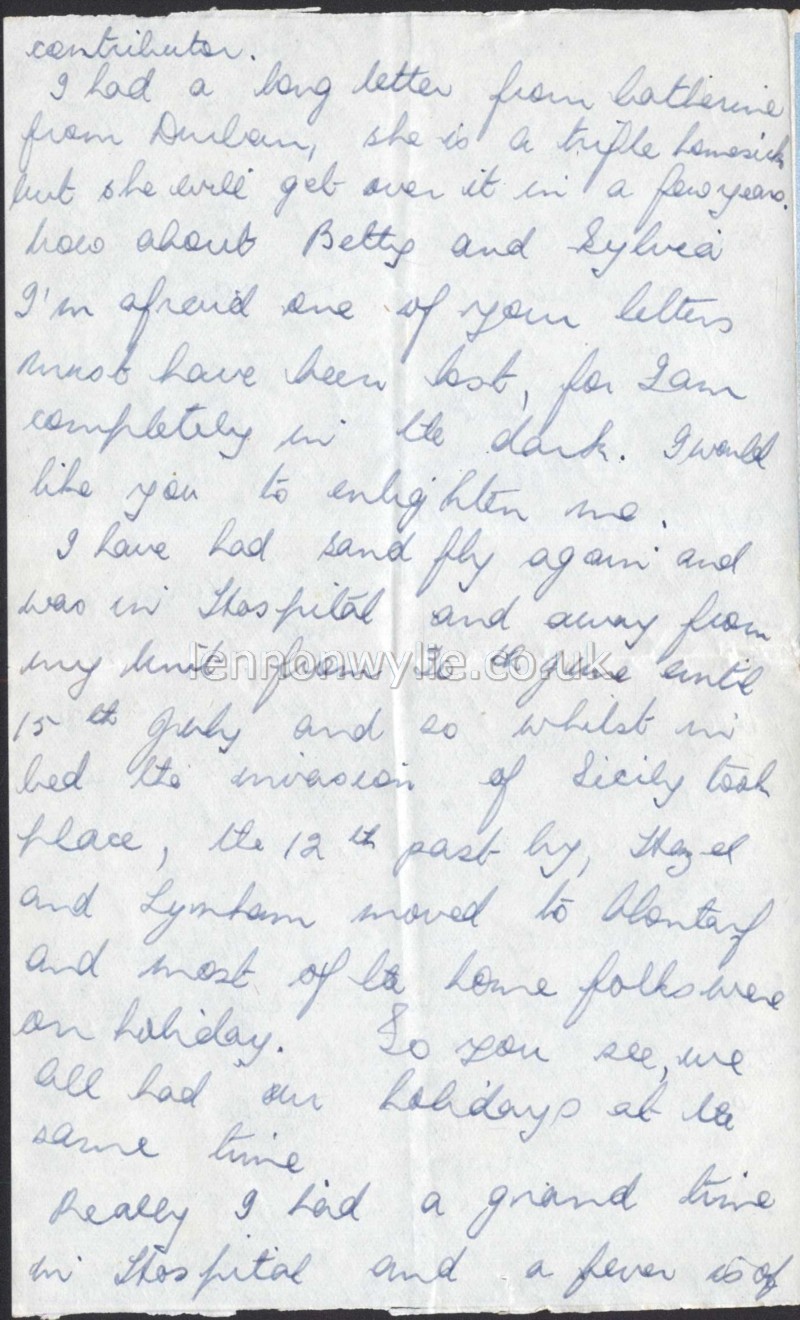 contributor.
I had a long letter from Catherine
from Durban, she is a trifle homesick
but she will get over it in a few years.
how about Betty and Sylvia
I'm afraid one of your letters
must have been lost, for I am
completely in the dark. I would
like you to enlighten me.
I have had sand fly again and
was in Hospital and away from
my unit from th June until
15th July and so whilst in
bed the invasion of Sicily took
place, the 12th past by, Hazel
and Lyndham moved to Clontarf
and most of the home folks were
on holiday. So you see, we
all had our holidays at the
same time
Really I had a grand time
in Hospital and a fever is of
lennonwylie.co.uk